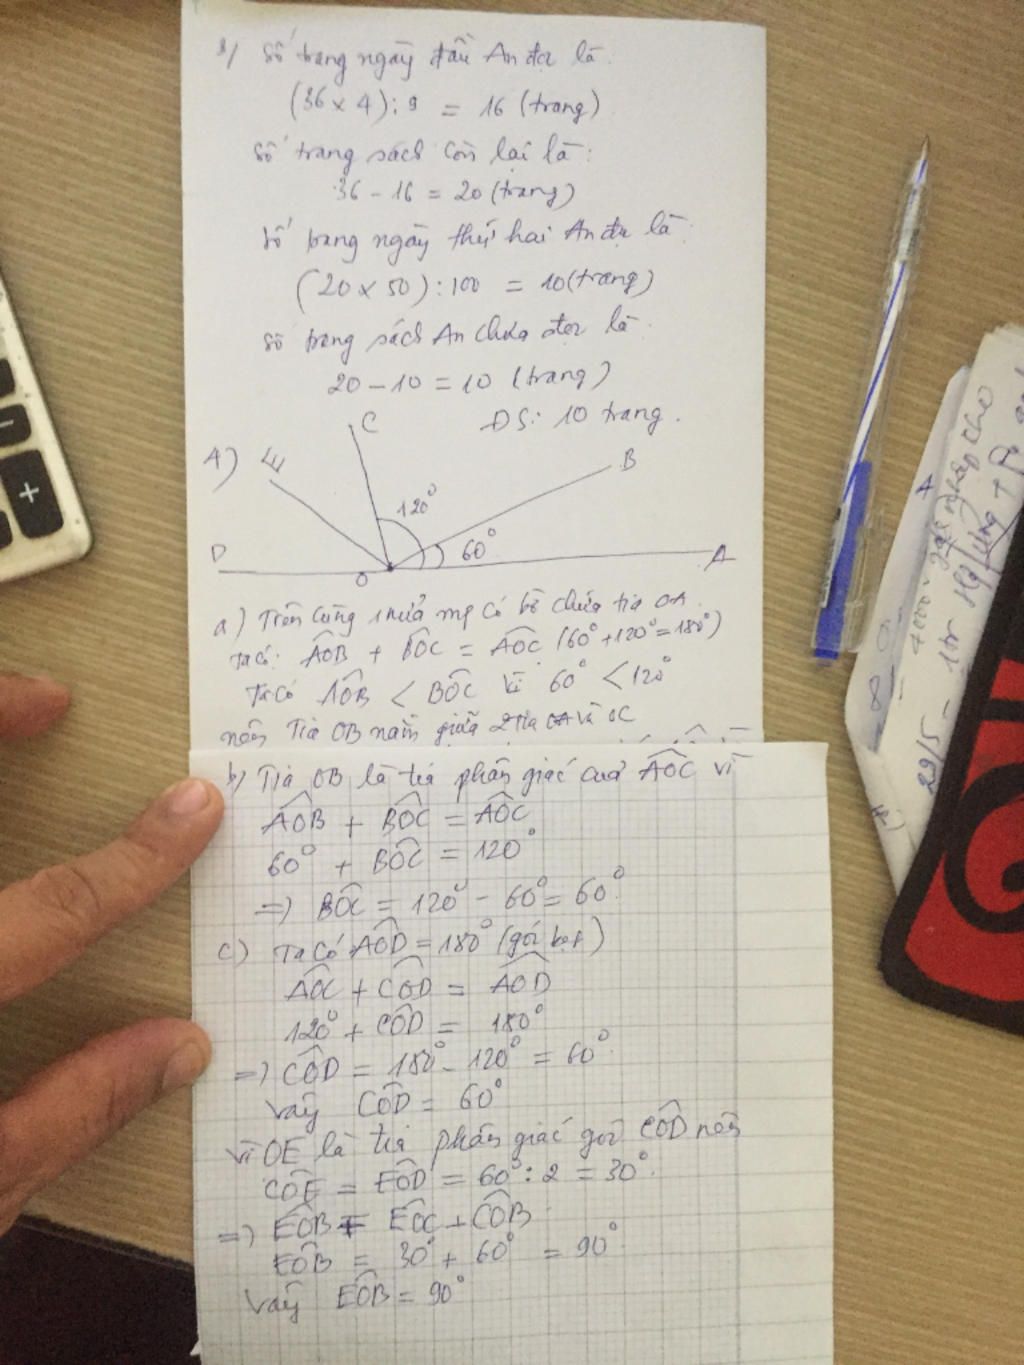 3/ Số trang ngày đầu An đọc là.
(36 x 4) : 9 = 16 (trang)
Số trang sách còn lại là:
36 - 16 = 20 (trang)
Số trang ngày thứ hai An đọc là
(20 x 50) : 100 = 10 (trang)
Số trang sách An chưa đọc là.
20 - 10 = 10 (trang)
ĐS: 10 trang.
4)
E
C
B
120°
60°
D
O
A
a) Trên cùng 1 nửa mp có bờ chứa tia OA.
Ta có: AÔB + BÔC = AÔC (60° + 120° = 180°)
Ta có AÔB < BÔC vì 60° < 120°
nên Tia OB nằm giữa 2 tia OA và OC
b) Tia OB là tia phân giác của AÔC vì
AÔB + BÔC = AÔC
60° + BÔC = 120°
=> BÔC = 120° - 60° = 60°.
c) Ta có AÔD = 180° (góc bẹt)
AÔC + CÔD = AÔD
120° + CÔD = 180°
=> CÔD = 180° - 120° = 60°.
Vậy CÔD = 60°
vì OE là tia phân giác góc CÔD nên
CÔE = EÔD = 60° : 2 = 30°.
=> EÔB = EÔC + CÔB
EÔB = 30° + 60° = 90°.
Vậy EÔB = 90°
+
29/5